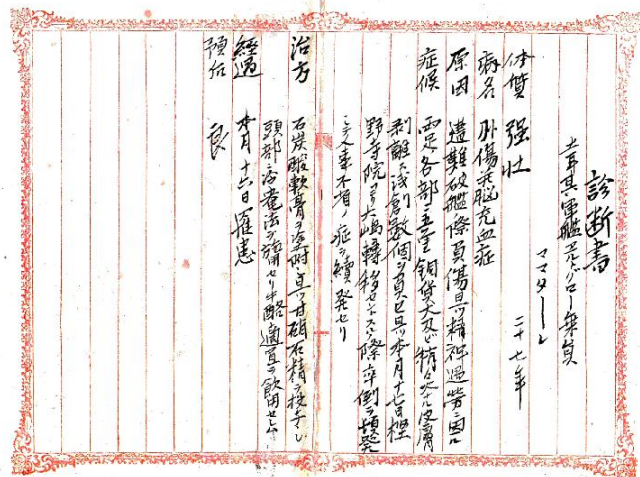 診断書
土耳其軍艦エルトグロー乗員
ママターレ
二十七年
体質 強壮
病名 外傷兼脳充血症
原因 遭難破艦際負傷且ツ精神過労ニ因ル
症候 両足各部ニ五厘銅貨大及ビ稍々大ナル皮膚
剥離ス浅創数個ヲ負ヒ且ツ本月十七日樫
野寺院ヨリ大嶋転移セントスル際卒倒ヲ頓発
シ人事不省ノ症ヲ続発セリ
治方 石炭酸軟膏ヲ塗附シ且ツ甘硝石精ヲ投与シ
頭部ニ冷罨法ヲ施用セリ牛酪適宜ヲ飲用セシム
経過 本月十六日罹患
預后 良